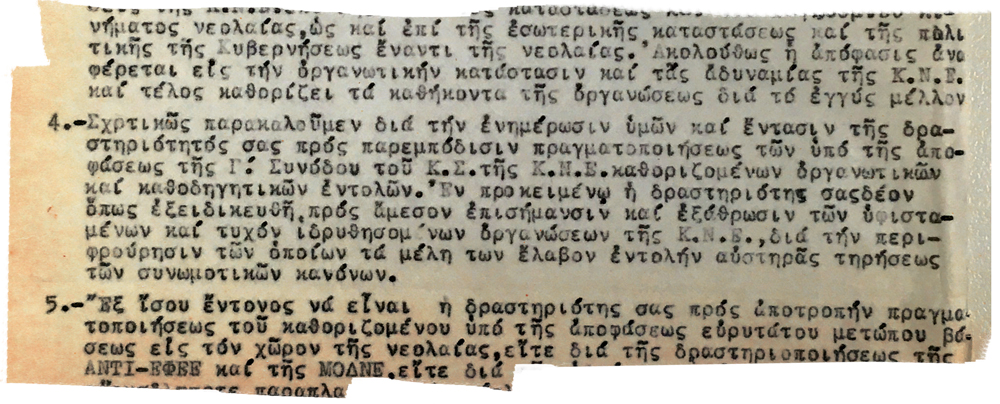 καταστάσεως
νήματος νεολαίας,ὡς καί ἐπί τῆς ἐσωτερικῆς καταστάσεως καί τῆς πολι
τικῆς τῆς Κυβερνήσεως ἔναντι τῆς νεολαίας. Ἀκολούθως ἡ ἀπόφασις ἀνα
φέρεται εἰς τήν ὀργανωτικήν κατάστασιν καί τάς ἀδυναμίας τῆς Κ.Ν.Ε.
καί τέλος καθορίζει τά καθήκοντα τῆς ὀργανώσεως διά τό ἐγγύς μέλλον
4.-Σχρτικῶς παρακαλοῦμεν διά τήν ἐνημέρωσιν ὑμῶν καί ἔντασιν τῆς δρα-
στηριότητός σας πρός παρεμπόδισιν πραγματοποιήσεως τῶν ὑπό τῆς ἀπο-
φάσεως τῆς Γ΄. Συνόδου τοῦ Κ.Σ.τῆς Κ.Ν.Ε.καθοριζομένων ὀργανωτικῶν
καί καθοδηγητικῶν ἐντολῶν. Ἐν προκειμένῳ ἡ δραστηριότης σαςδέον
ὅπως ἐξειδικευθῆ,πρός ἄμεσον ἐπισήμανσιν καί ἐξάθρωσιν τῶν ὑφιστα-
μένων καί τυχόν ἱδρυθησομένων ὀργανώσεων τῆς Κ.Ν.Ε.,διά τήν περι-
φρούρησιν τῶν ὁποίων τά μέλη των ἔλαβον ἐντολήν αὐστηρᾶς τηρήσεως
τῶν συνωμοτικῶν κανόνων.
5.-Ἐξ ἴσου ἔντονος νά εἶναι ἡ δραστηριότης σας πρός ἀποτροπήν πραγμα-
τοποιήσεως τοῦ καθοριζομένου ὑπό τῆς ἀποφάσεως εὐρυτάτου μετώπου βά-
σεως εἰς τόν χῶρον τῆς νεολαίας,εἴτε διά τῆς δραστηριοποιήσεως τῆς
ΑΝΤΙ-ΕΦΕΕ καί τῆς ΜΟΔΝΕ,εἴτε διά